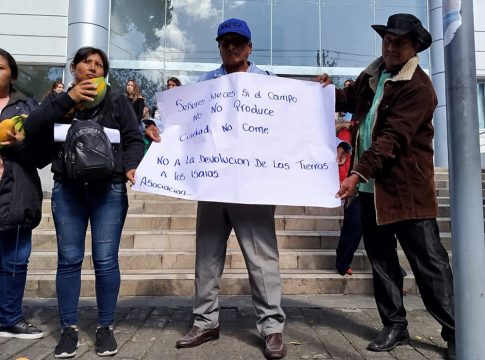 Señores Jueces Si el Campo
No No Produce
Ciudad No Come
No A la Devolucion De Las Tierras
A los Isaias
Asociacion